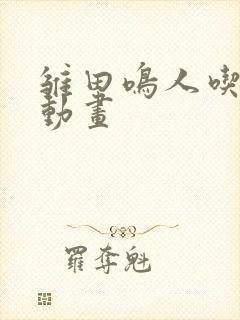 雏田鳴人喫
動畫
羅奪魁